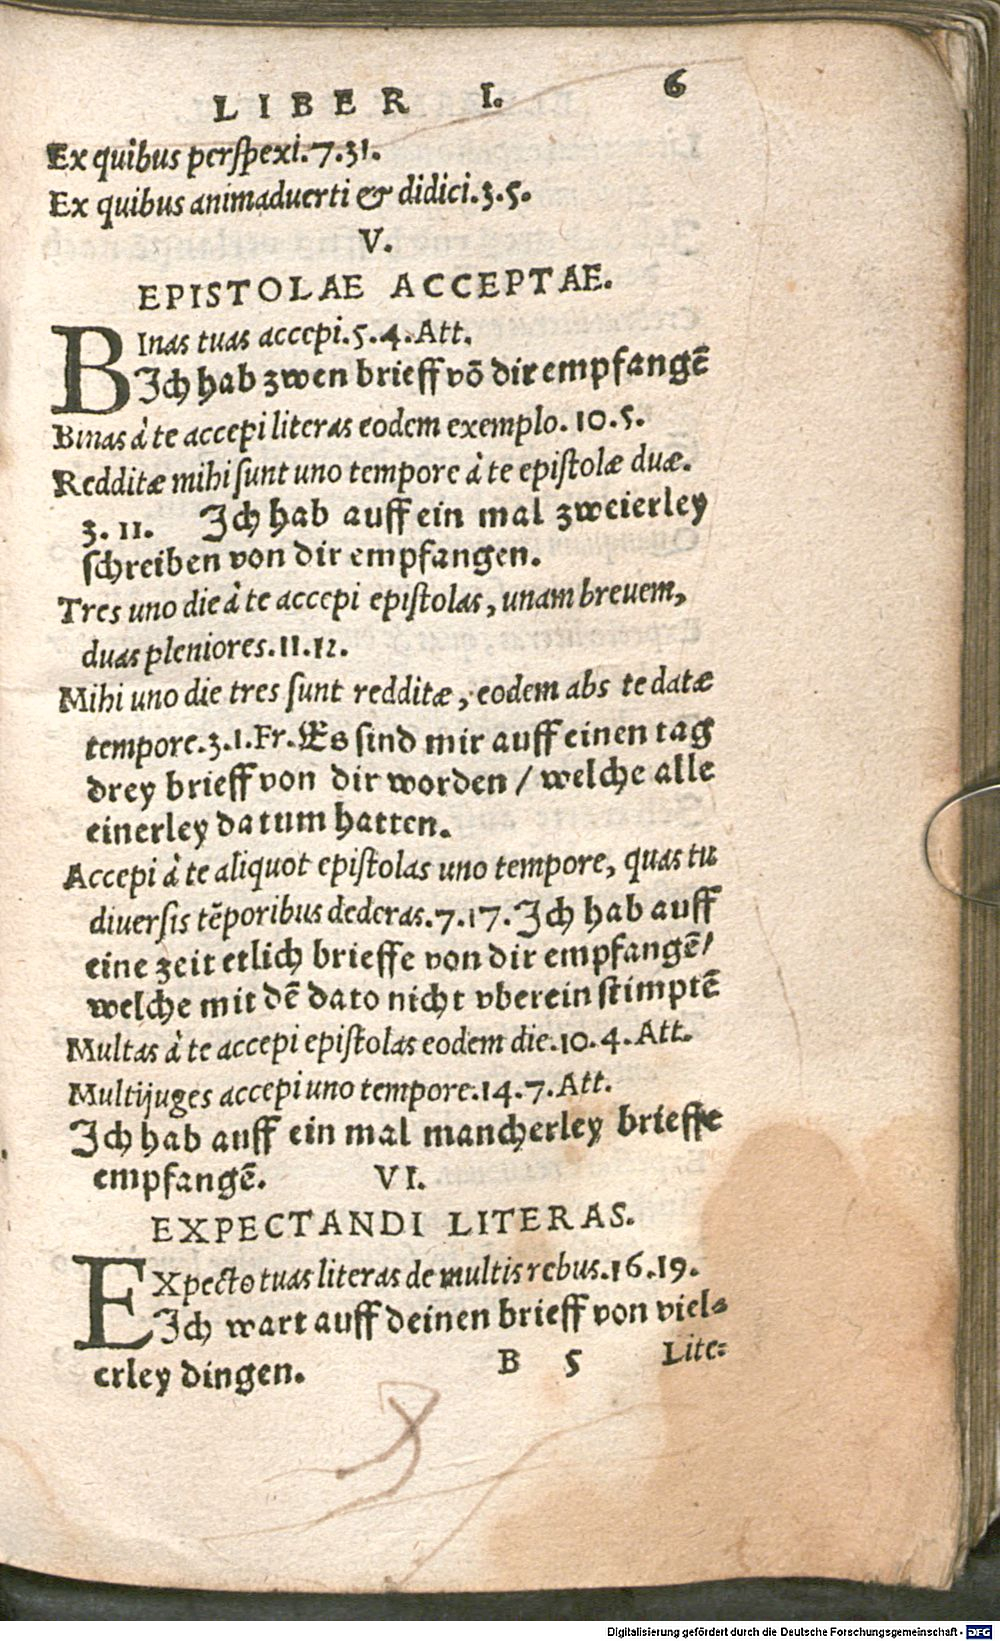 LIBER I. 6
Ex quibus perſpexi.7.31.
Ex quibus animaduerti & didici.3.5.
V.
EPISTOLAE ACCEPTAE.
BInas tuas accepi.5.4.Att.
Ich hab zwen brieff võ dir empfangẽ
Binas à te accepi literas eodem exemplo. 10.5.
Redditæ mihi ſunt uno tempore à te epiſtolæ duæ.
3.11. Ich hab auff ein mal zweierley
ſchreiben von dir empfangen.
Tres uno die à te accepi epiſtolas, unam breuem,
duas pleniores.11.12.
Mihi uno die tres ſunt redditæ, eodem abs te datæ
tempore.3.1.Fr. Es ſind mir auff einen tag
drey brieff von dir worden / welche alle
einerley datum hatten.
Accepi à te aliquot epiſtolas uno tempore, quas tu
diuerſis tẽporibus dederas.7.17. Ich hab auff
eine zeit etlich brieffe von dir empfangẽ/
welche mit dẽ dato nicht vberein ſtimptẽ
Multas à te accepi epiſtolas eodem die.10.4.Att.
Multijuges accepi uno tempore.14.7.Att.
Ich hab auff ein mal mancherley brieffe
empfangẽ. VI.
EXPECTANDI LITERAS.
EXpecto tuas literas de multis rebus.16.19.
Ich wart auff deinen brieff von viel⸗
erley dingen. B 5 Lite⸗
Digitalisierung gefördert durch die Deutsche Forschungsgemeinschaft - DFG